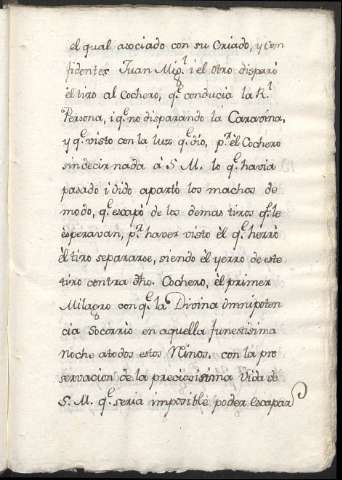 el qual asociado con su Criado, y Con
fidentes Juan Migl. i el otro disparó
el tiro al Cochero, qe. conducia la Rl.
Persona, i qe. no disparando la Caravina,
y qe. visto con la luz qe. dio, pr. el Cochero
sin decir nada á S. M. lo qe. havia
pasado i oido apartó los machos de
modo, qe. escapó de los demas tiros qe. le
esperavan, pr. haver visto el qe. herró
el tiro separarse, siendo el yerro de este
tiro contra dho. Cochero, el primer
Milagro con qe. la Divina omnipoten
cia socorrió en aquella funestisima
noche a todos estos Niños, con la pre
servacion de la preciosisima Vida de
S. M. qe. seria imposible poder escapar